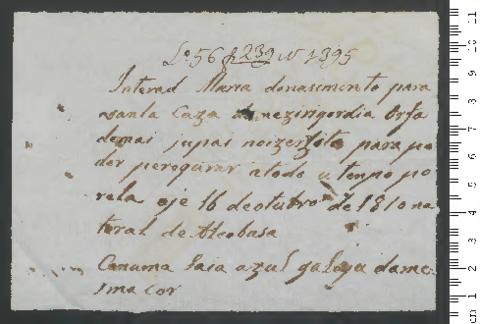 Lº 56 f 239 nº 1395
Interad Maria donascimento para
santa Caza de mezirigordia Orfa
demai jupai noizerzito para po
der percqurar atodo u tenpo po
rela oje 16 de otubro de 1810 na
tural de Alcobasa
Comuma saia azul da me
sma cor